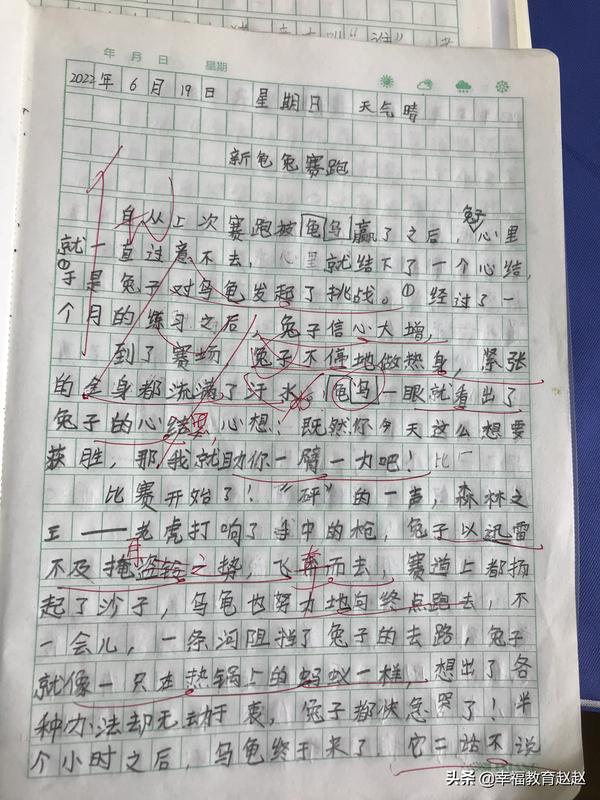 年 月 日 星期
2022年 6月 19日 星期日 天气晴
新龟兔赛跑
自从上次赛跑被龟乌赢了之后，兔子心里
就一直过意不去，心里就结下了一个心结，
于是兔子对乌龟发起了挑战。①经过了一
个月的练习之后，兔子信心大增，
到了赛场，兔子不停地做热身，紧张
的全身都流满了汗水。龟乌一眼就看出了
兔子的心思，心想：既然你今天这么想要
获胜，那我就助你一臂一力吧！比
比赛开始了！“砰”的一声，森林之
王——老虎打响了手中的枪，兔子以迅雷
不及掩耳盗铃之势，飞奔而去，赛道上都扬
起了沙子，乌龟也努力地向终点跑去，不
一会儿，一条河阻挡了兔子的去路，兔子
就像一只在热锅上的蚂蚁一样，想出了各
种办法却无动于衷，兔子都快急哭了！半
个小时之后，乌龟终于来了，它二话不说
头条 @幸福教育赵赵